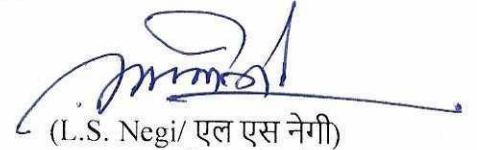 (L.S. Negi/ एल एस नेगी)